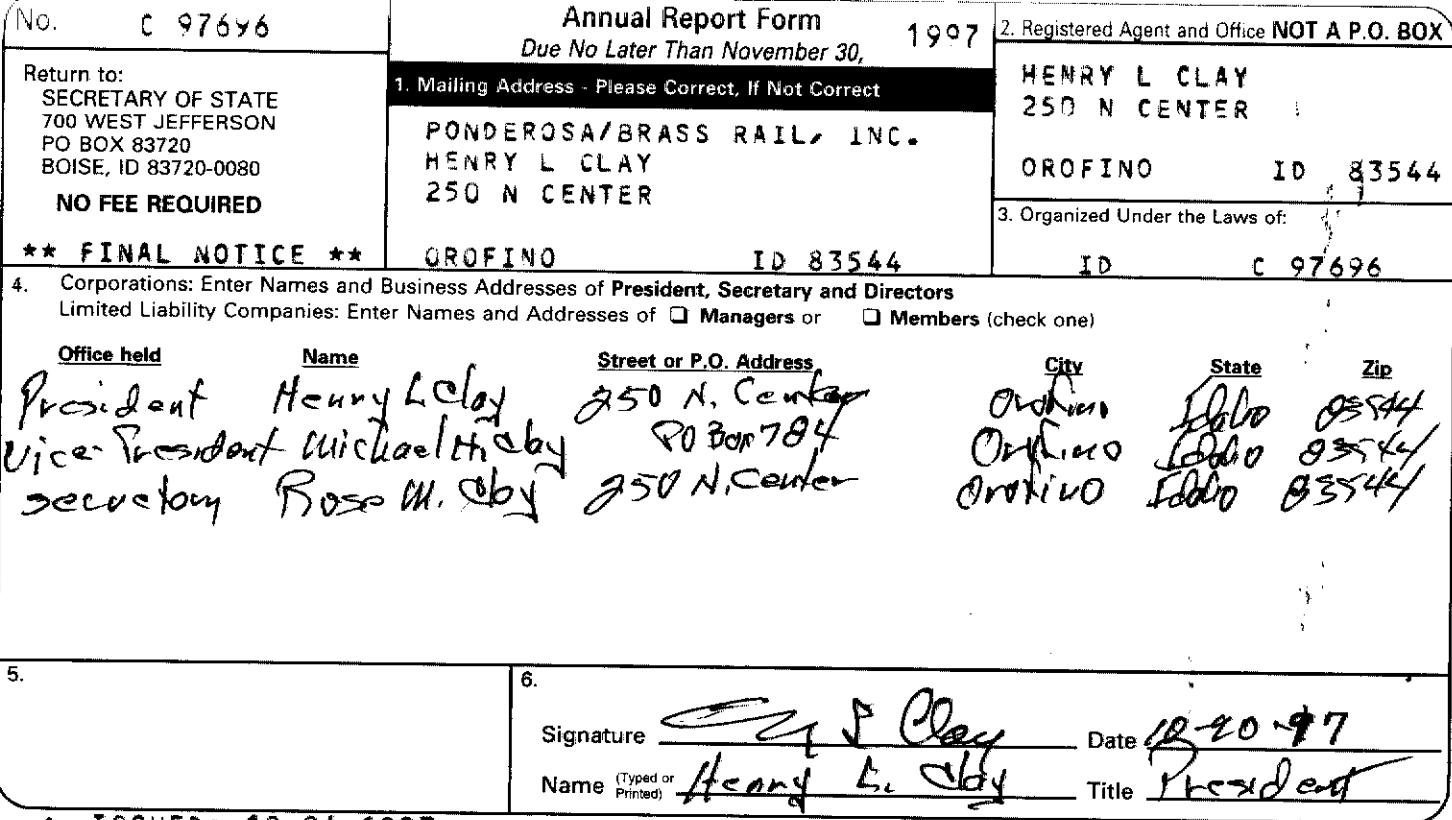 No. C 97696
Annual Report Form 1997
Due No Later Than November 30,
Return to:
SECRETARY OF STATE
700 WEST JEFFERSON
PO BOX 83720
BOISE, ID 83720-0080
NO FEE REQUIRED
** FINAL NOTICE **
1. Mailing Address - Please Correct, If Not Correct
PONDEROSA/BRASS RAIL, INC.
HENRY L CLAY
250 N CENTER
OROFINO ID 83544
2. Registered Agent and Office NOT A P.O. BOX
HENRY L CLAY
250 N CENTER
OROFINO ID 83544
3. Organized Under the Laws of:
ID C 97696
4. Corporations: Enter Names and Business Addresses of President, Secretary and Directors
Limited Liability Companies: Enter Names and Addresses of ❑ Managers or ❑ Members (check one)
Office held Name Street or P.O. Address City State Zip
President Henry L Clay 250 N. Center Orofino Idaho 83544
Vice President Michael H Clay PO Box 784 Orofino Idaho 83544
Secretary Rose M. Clay 250 N. Center Orofino Idaho 83544
5.
6.
Signature L Clay Date -20-97
Name (Typed or Printed) Henry L. Clay Title President